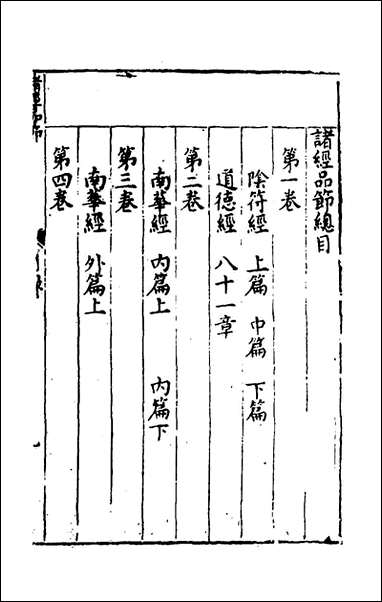 諸經品節總目
第一卷
陰符經 上篇 中篇 下篇
道德經 八十一章
第二卷
南華經 內篇上 內篇下
第三卷
南華經 外篇上
第四卷